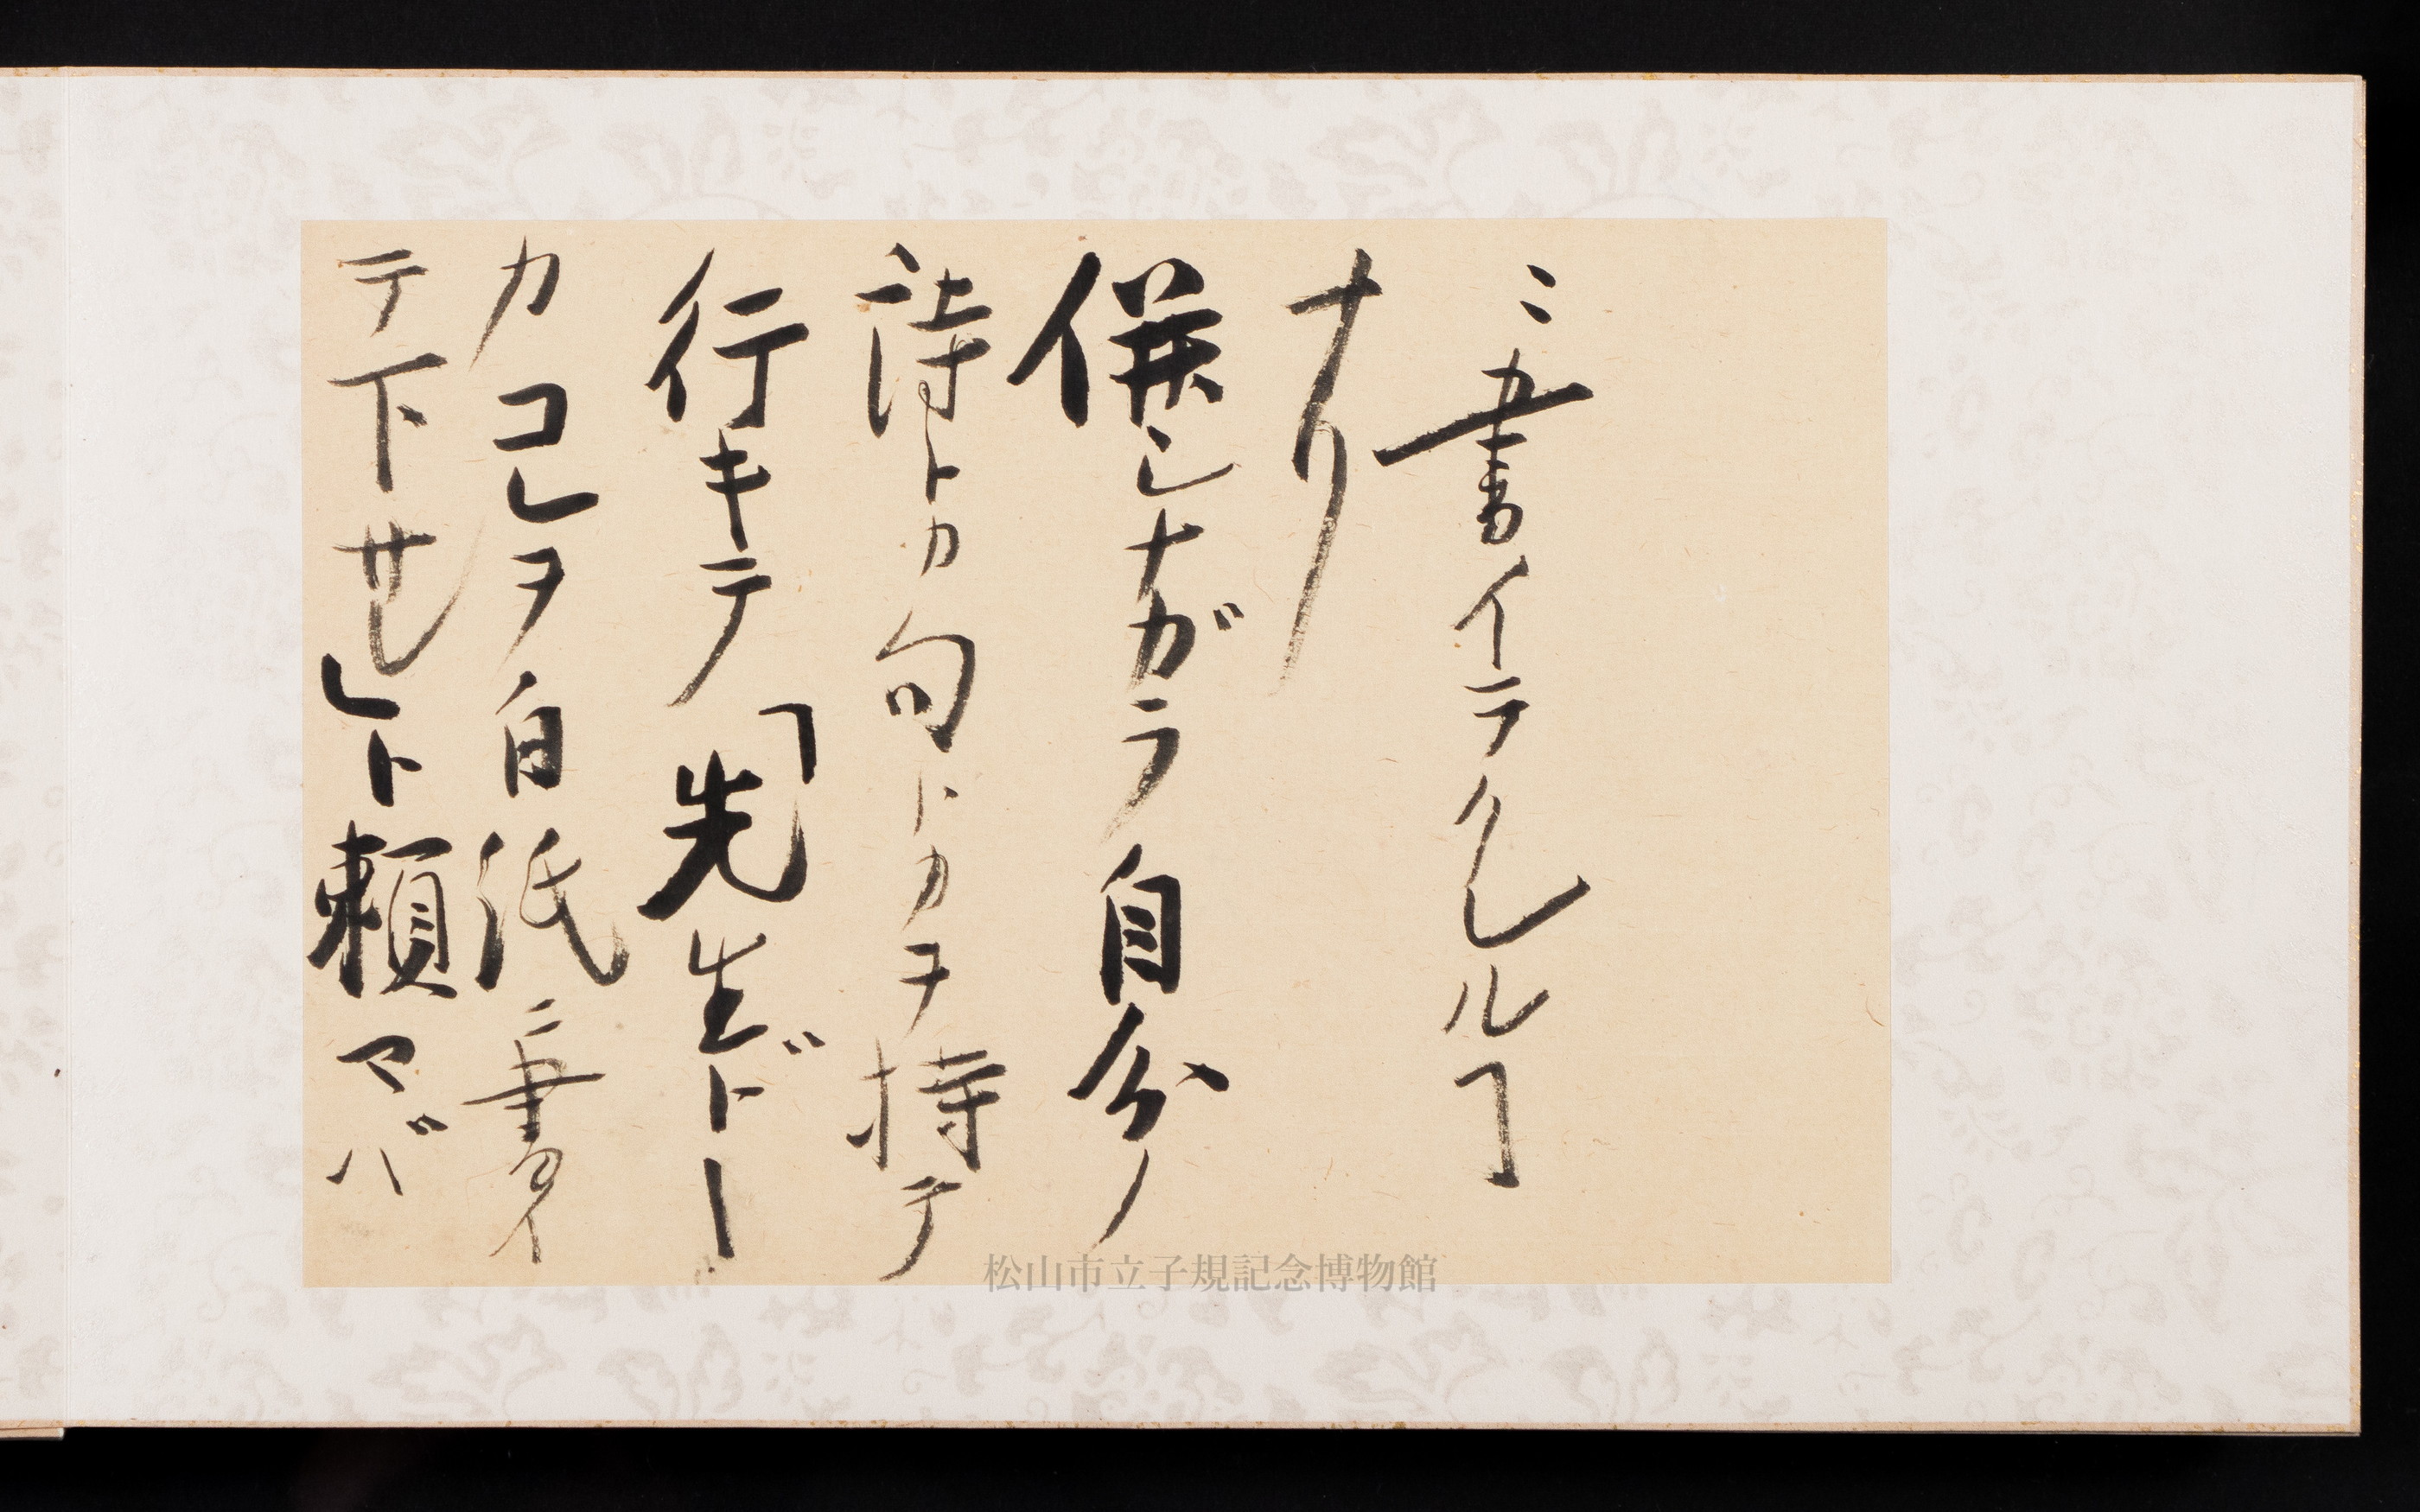 ニ書イテクレルヿ
ナリ
併しナガラ自分ノ
詩トカ句トカヲ持テ
行キテ「先生ドー
カコレヲ白紙ニ書イ
テ下サレト頼マバ
松山市立子規記念博物館